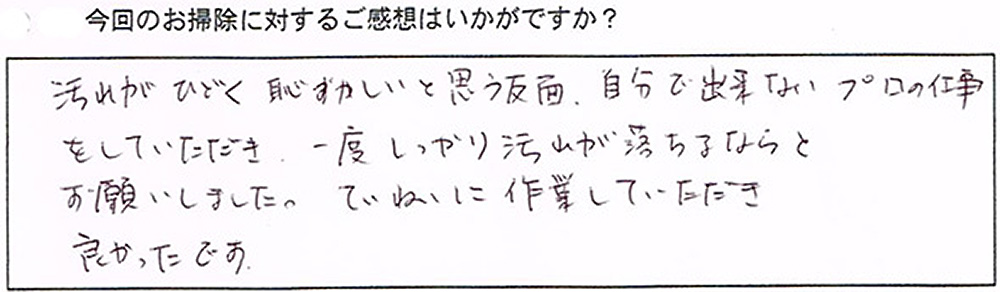 今回のお掃除に対するご感想はいかがですか？
汚れがひどく恥ずかしいと思う反面、自分で出来ないプロの仕事
をしていただき、一度しっかり汚れが落ちるならと
お願いしました。ていねいに作業していただき
良かったです。